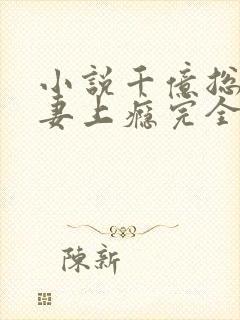 小說千億總
妻上癮完全
陳新